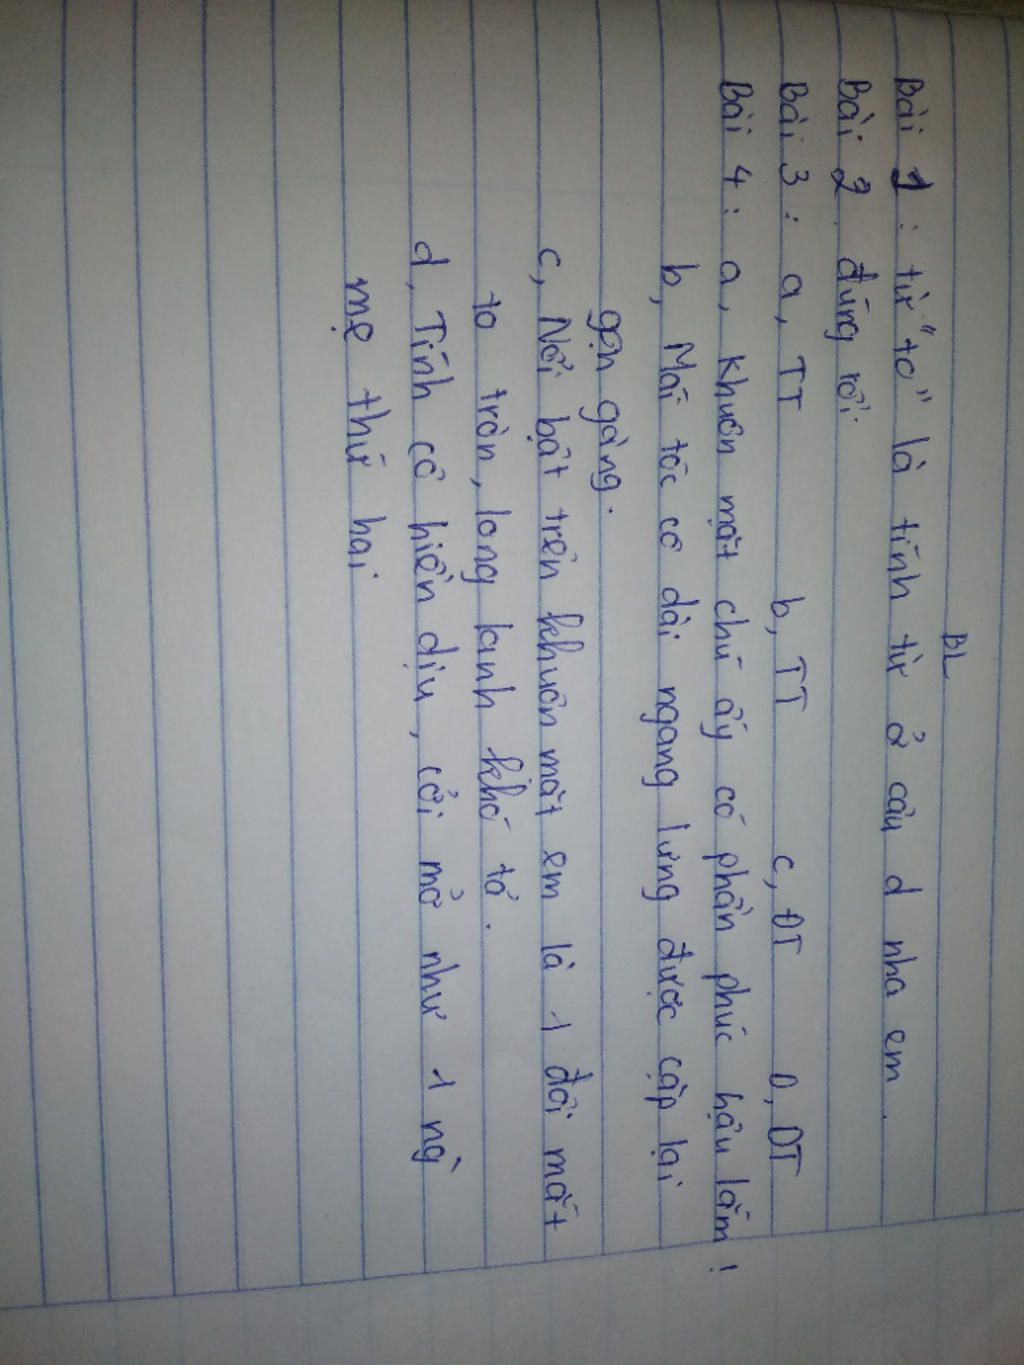 BL
Bài 1 : từ "to" là tính từ ở câu d nha em.
Bài 2 đúng rồi.
Bài 3 : a, TT b, TT c, ĐT D, DT
Bài 4 : a, Khuôn mặt chú ấy có phần phúc hậu lắm !
b, Mái tóc cô dài ngang lưng được cặp lại
gọn gàng.
c, Nổi bật trên khuôn mặt em là 1 đôi mắt
to tròn, long lanh khó tả.
d, Tính cô hiền dịu, cởi mở như 1 ng`
mẹ thứ hai